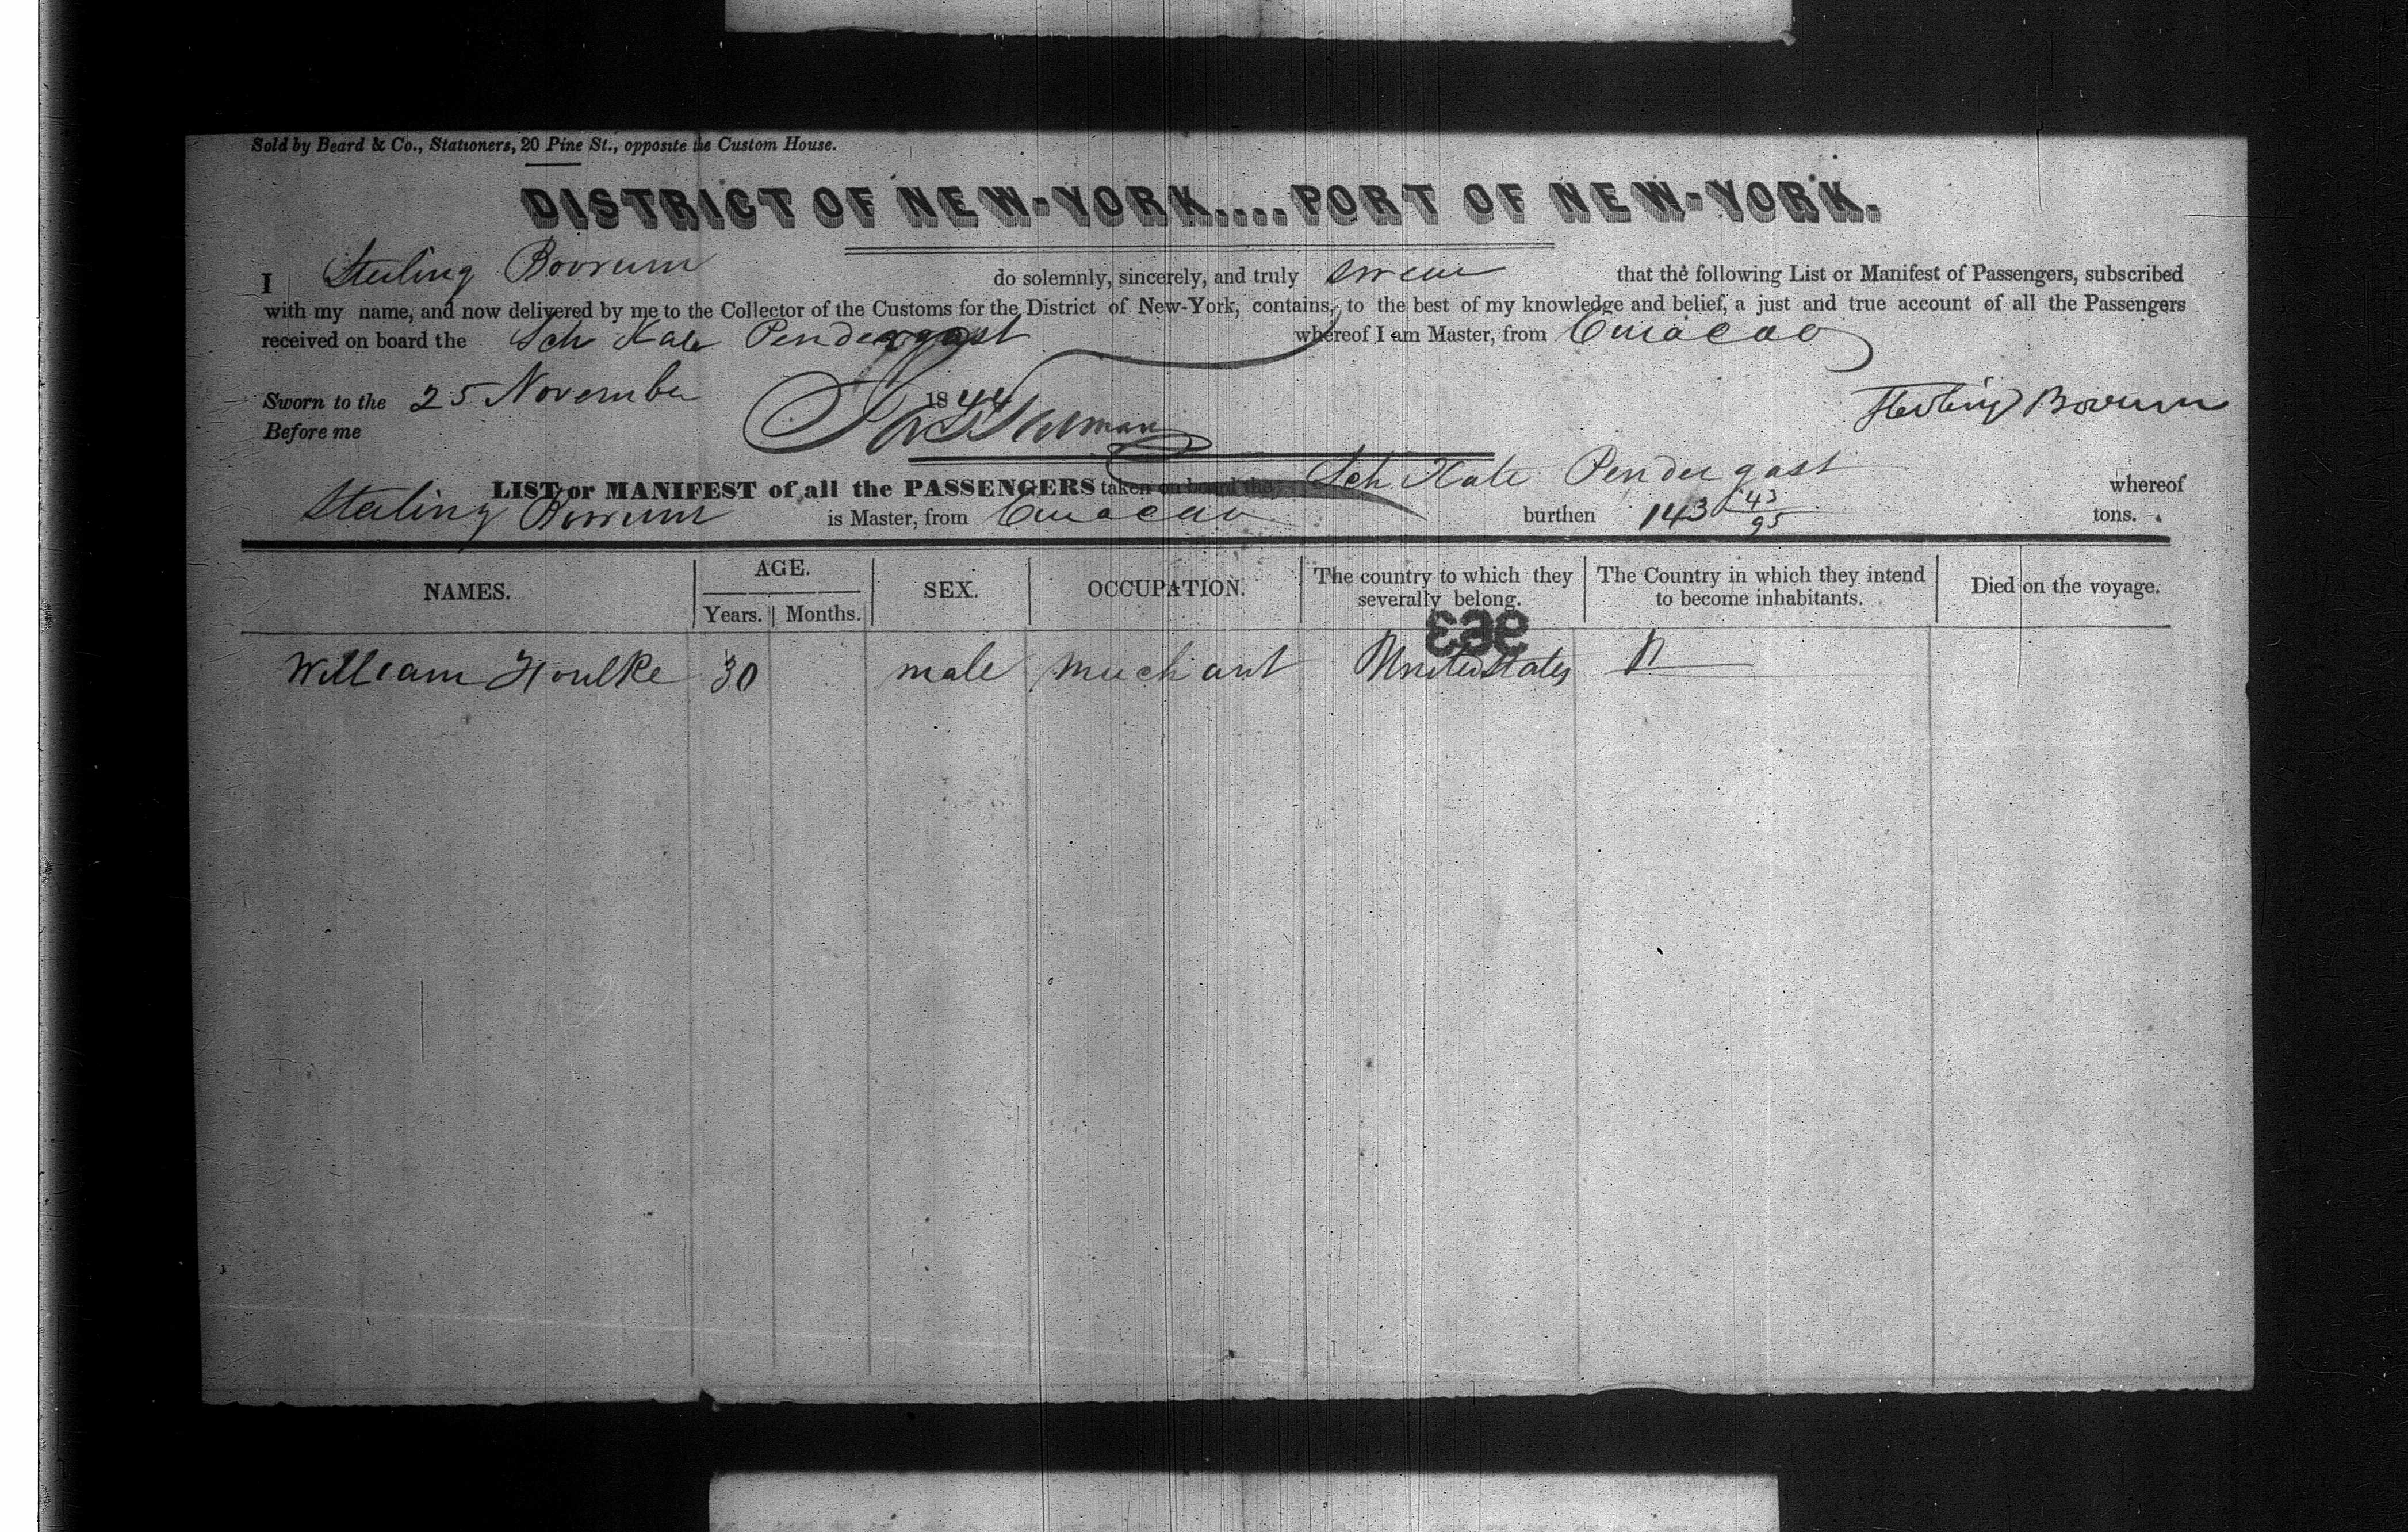 Sold by Beard & Co., Stationers, 20 Pine St., opposite the Custom House.
DISTRICT OF NEW-YORK....PORT OF NEW-YORK.
I Sterling Boorum do solemnly, sincerely, and truly swear that the following List or Manifest of Passengers, subscribed
with my name, and now delivered by me to the Collector of the Customs for the District of New-York, contains, to the best of my knowledge and belief, a just and true account of all the Passengers
received on board the Sch Kate Pendergast whereof I am Master, from Curacao
Sworn to the 25 November 1844 Sterling Boorum
Before me
LIST or MANIFEST of all the PASSENGERS taken on board the Sch Kate Pendergast whereof
Sterling Boorum is Master, from Curacao burthen 143 43/95 tons.
NAMES. AGE. SEX. OCCUPATION. The country to which they severally belong. The Country in which they intend to become inhabitants. Died on the voyage.
Years. Months.
963
William Foulke 30 male merchant United States "